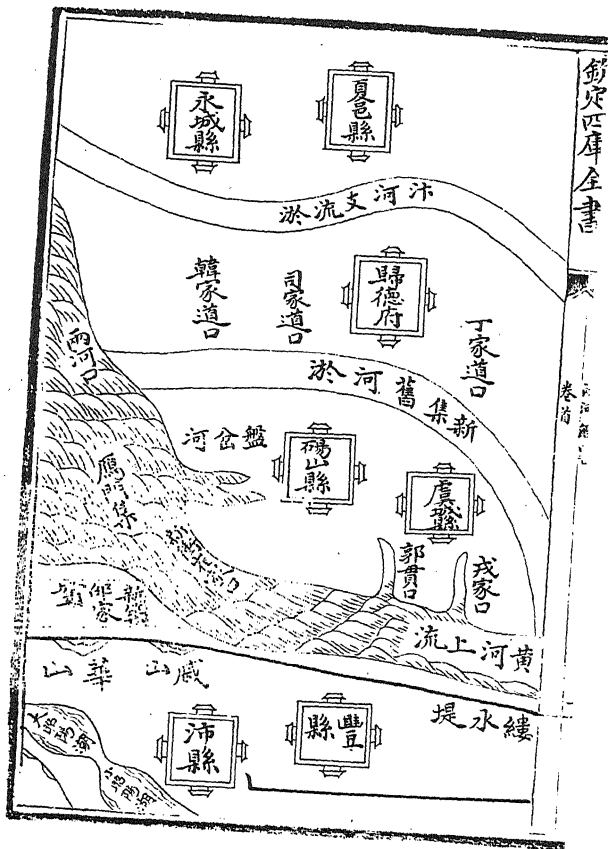 欽定四庫全書
卷首
夏邑縣
永城縣
汴河支流淤
歸德府
丁家道口
司家道口
韓家道口
新集舊河淤
兩河口
盤岔河
碭山縣
虞城縣
鴈門集
郭貫口
戎家口
黃河上流
戚山
華山
縷水堤
豐縣
沛縣
大昭陽湖
小昭陽湖